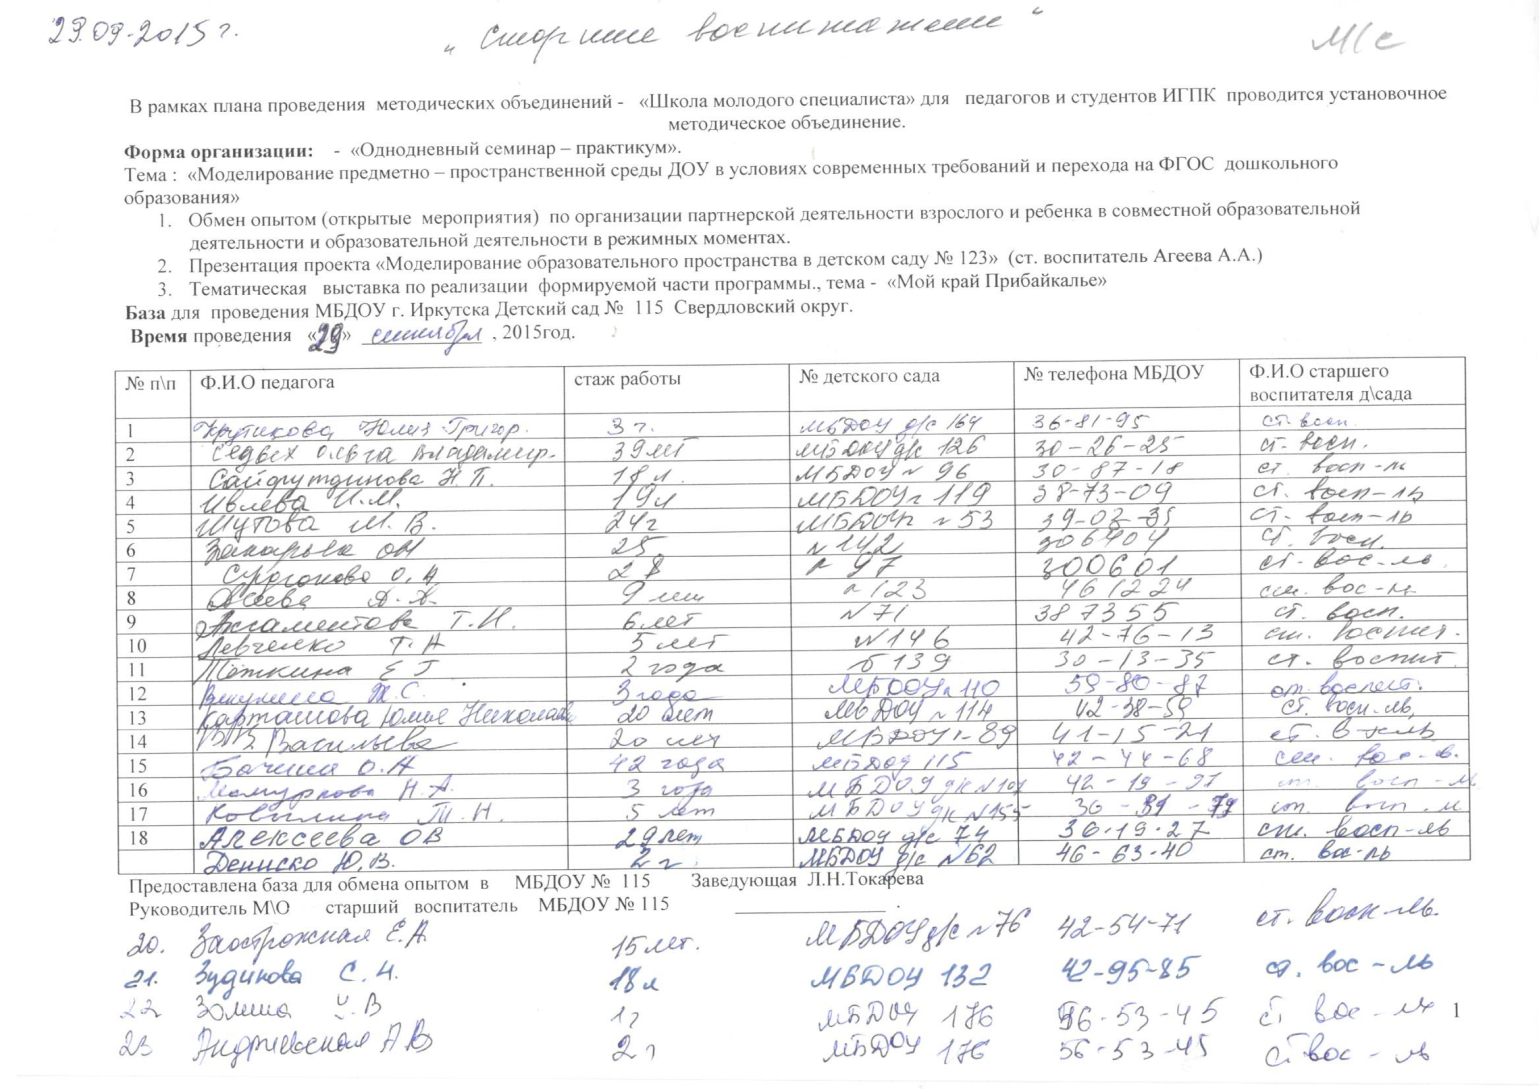 29.09.2015 г.
„ Старшие воспитатели "
М/с
В рамках плана проведения методических объединений - «Школа молодого специалиста» для педагогов и студентов ИГПК проводится установочное
методическое объединение.
Форма организации: - «Однодневный семинар – практикум».
Тема : «Моделирование предметно – пространственной среды ДОУ в условиях современных требований и перехода на ФГОС дошкольного
образования»
1. Обмен опытом (открытые мероприятия) по организации партнерской деятельности взрослого и ребенка в совместной образовательной
деятельности и образовательной деятельности в режимных моментах.
2. Презентация проекта «Моделирование образовательного пространства в детском саду № 123» (ст. воспитатель Агеева А.А.)
3. Тематическая выставка по реализации формируемой части программы., тема - «Мой край Прибайкалье»
База для проведения МБДОУ г. Иркутска Детский сад № 115 Свердловский округ.
Время проведения «29» сентября , 2015год.
№ п\п Ф.И.О педагога стаж работы № детского сада № телефона МБДОУ Ф.И.О старшего
воспитателя д\сада
1 Крутикова Юлия Григор. 3 г. МБДОУ д/с 164 36-81-95 ст. восп.
2 Седых Ольга Владимир. 39 лет МБДОУ д/с 126 30-26-25 ст. восп.
3 Сайфутдинова Н.П. 18 л. МБДОУ № 96 30-87-18 ст. восп-ль
4 Ивлева И.М. 19 л МБДОУ № 119 38-73-09 ст. восп-ль
5 Шутова М. В. 24 г МБДОУ № 53 ст. восп-ль
6 25 № 142 306404 ст. восп.
7 О.А 28 № 97 300601 ст. вос-ль
8 А.А. 9 лет № 123 461224 ст. вос-ль
9 Т.И. 6 лет № 71 387355 ст. восп.
10 Левченко Т.А 5 лет № 146 42-76-13 ст. воспит.
11 Тёткина Е Г 2 года 139 30-13-35 ст. воспит.
12 3 года МБДОУ № 110 59-80-87 ст. воспит.
13 Карташова Юлия Николаев 20 лет МБДОУ № 114 42-38-59 ст. восп-ль
14 Васильева 20 лет МБДОУ № 89 41-15-21 ст. в-ль
15 О.А 42 года МБДОУ 115 42-44-68 ст. вос-в.
16 Н.А. 3 года МБДОУ д/с № 101 ст. восп-ль
17 Ковылина Т.Н. 5 лет МБДОУ д/с № 155 36-31-79 ст. восп-ль
18 Алексеева ОВ 29 лет МБДОУ д/с 74 30-19-27 ст. восп-ль
Дениско Ю.В. 2 г. МБДОУ д/с №62 46-63-40 ст. вос-ль
Предоставлена база для обмена опытом в МБДОУ № 115 Заведующая Л.Н.Токарева
Руководитель М\О старший воспитатель МБДОУ № 115
20. Заострожная Е.А. 15 лет. МБДОУ д/с № 76 42-54-71 ст. восп-ль.
21. Зудинова С.Н. 18 л МБДОУ 132 42-95-85 ст. вос-ль
22 1 г МБДОУ 176 56-53-45 ст вос-ль
23 Андриевская А В 2 г МБДОУ 176 56-53-45 ст вос-ль
1